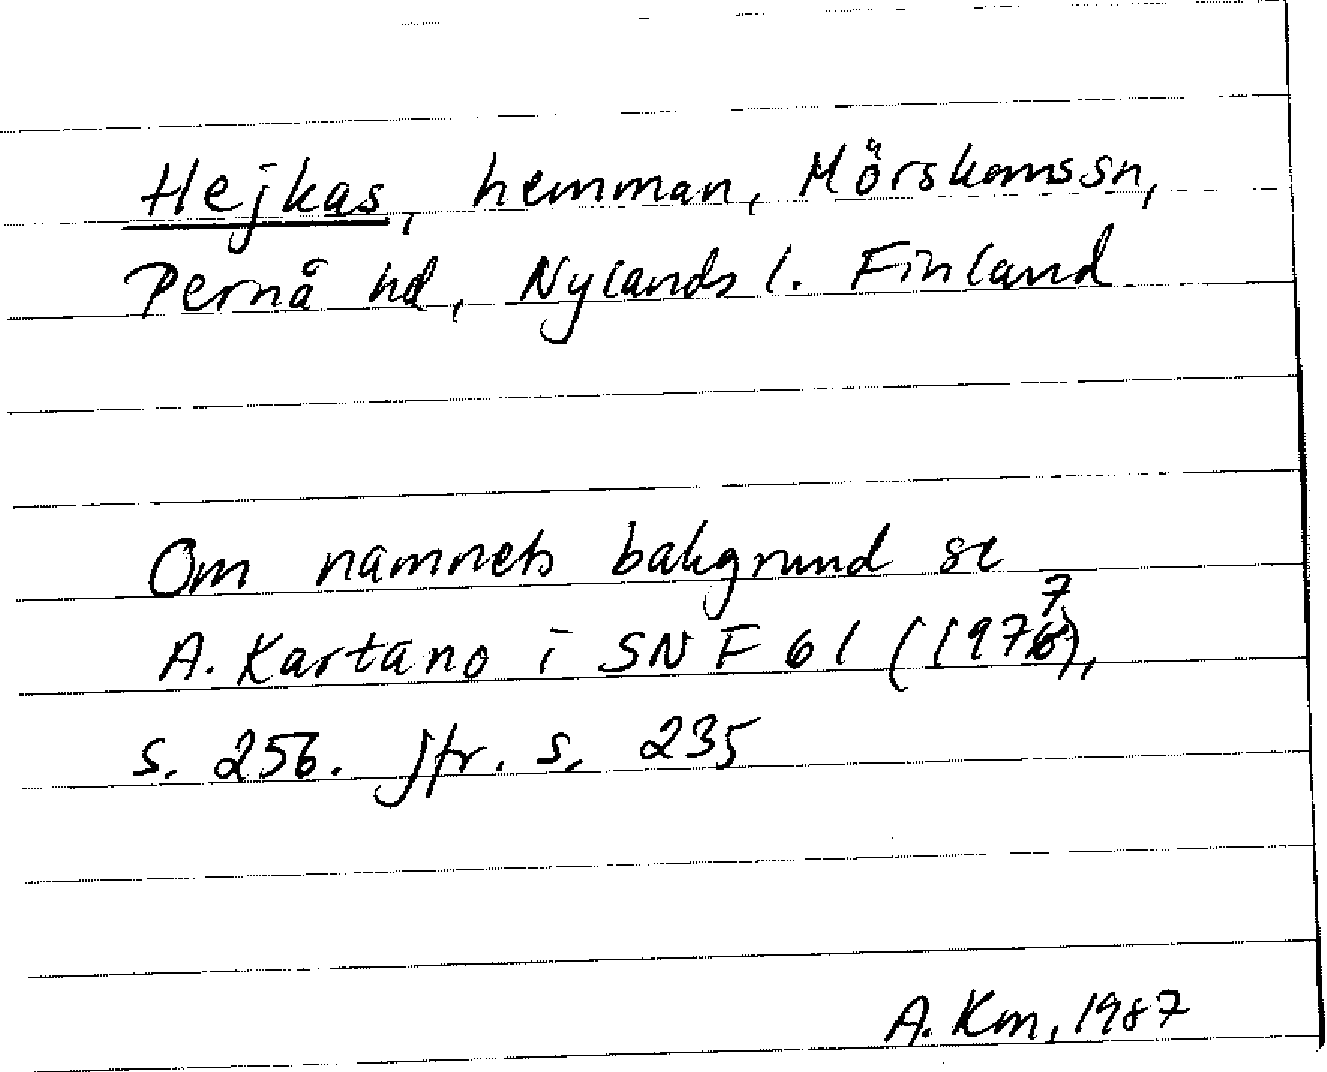 Hejkas, hemman, Mörskomssn,
Pernå hd, Nylands l. Finland
Om namnets bakgrund se
A. Kartano i SNF 61 (1977),
s. 256. Jfr. s. 235
A. Km, 1987